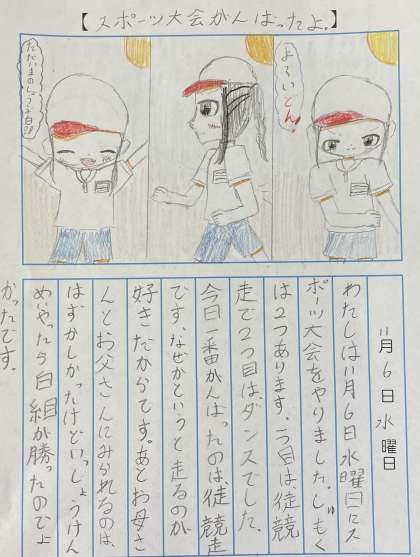 【スポーツ大会がんばったよ。】
よういどん!
11月6日水曜日
わたしは11月6日水曜日にス
ポーツ大会をやりました。しゅもく
は2つあります。一つ目は、徒競
走で2つ目は、ダンスでした。
今日一番がんばったのは、徒競走
です。なぜかというと走るのが
好きだからです。あとお母さ
んとお父さんにみられるのは、
はずかしかったけどいっしょうけん
めいやったら白組が勝ったのでよ
かったです。